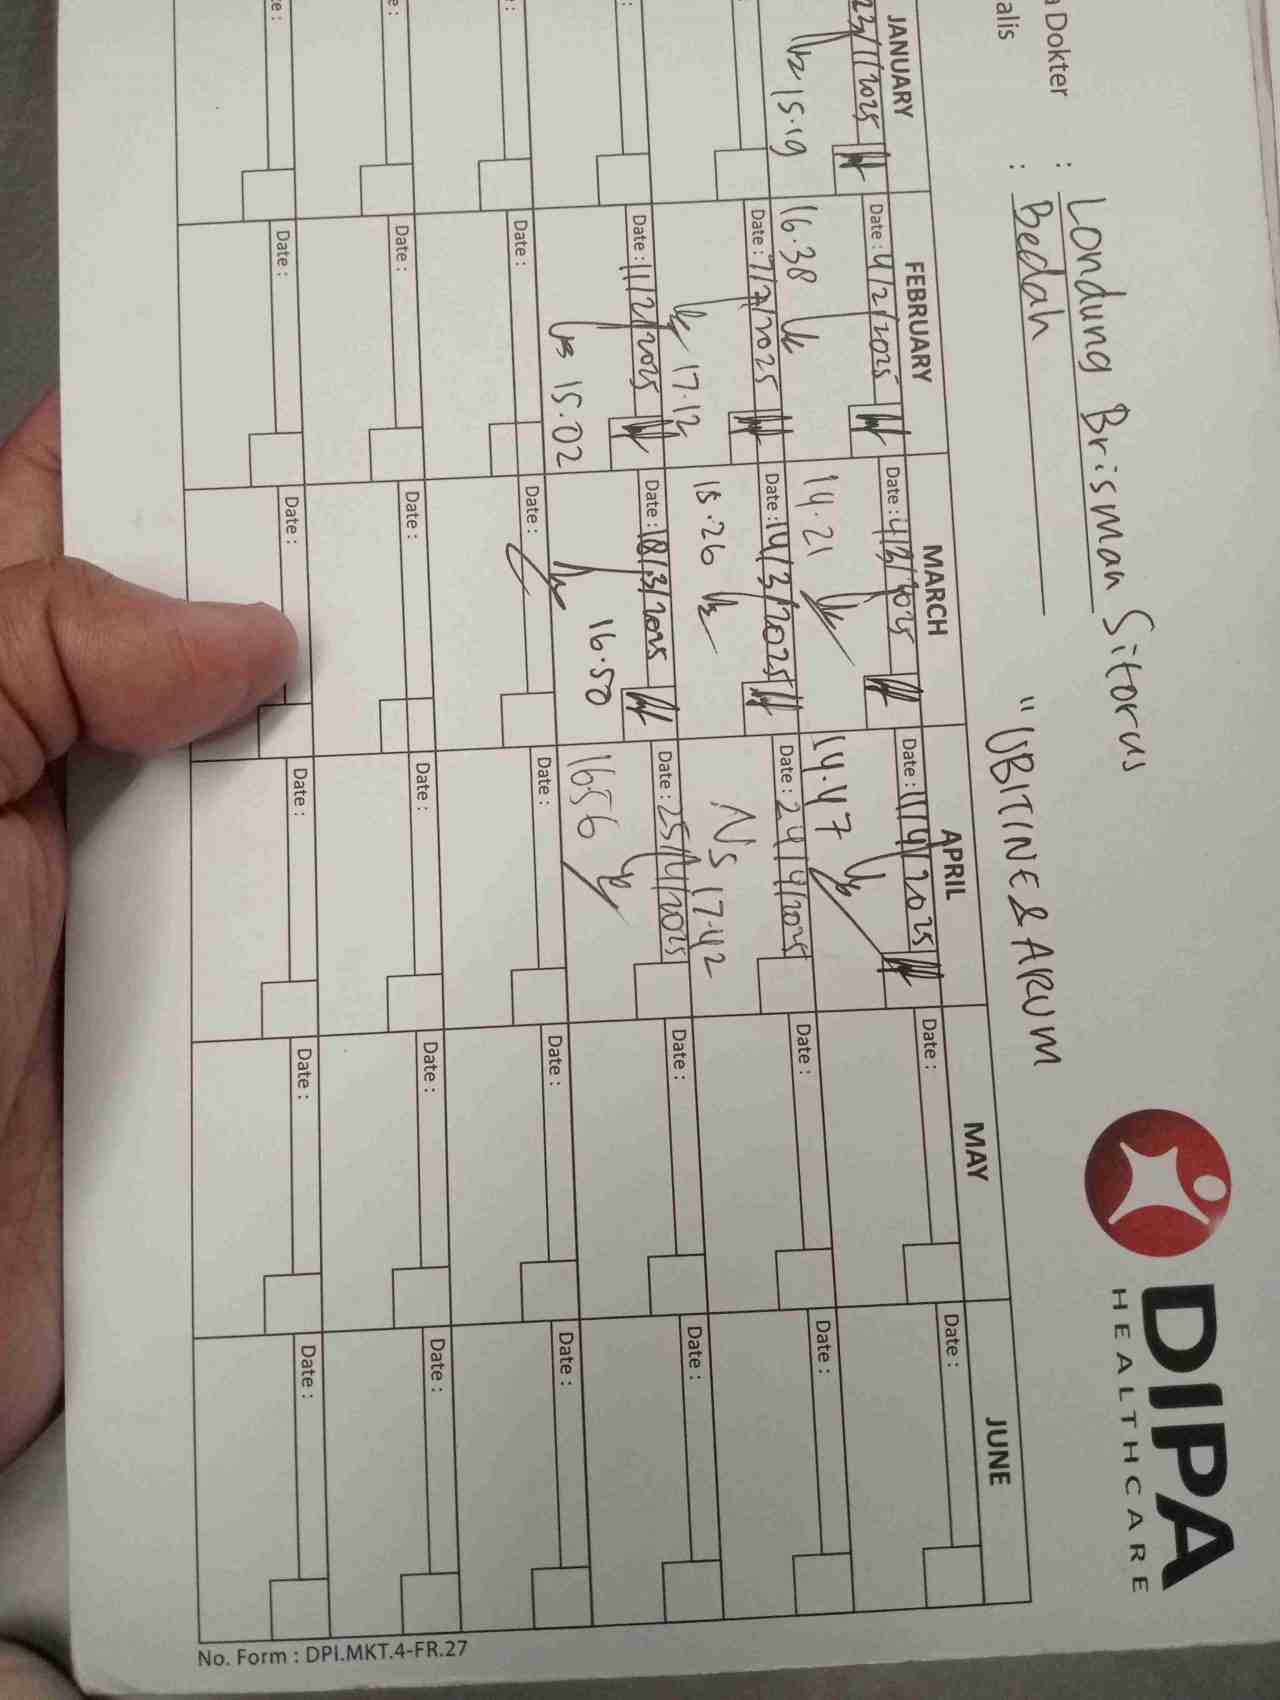 DIPA
HEALTHCARE
Dokter : Londung Brisman Sitorus
alis : Bedah
" UBITINE & ARUM
JANUARY FEBRUARY MARCH APRIL MAY JUNE
23/1/2025 Date : 4/2/2025 Date : 4/3/2025 Date : 11/4/2025 Date : Date :
15.19 16.38 14.21 14.47
Date : 7/2/2025 Date : 14/3/2025 Date : 24/4/2025 Date : Date :
17.12 15.26 Ns 17.42
Date : 11/2/2025 Date : 18/3/2025 Date : 25/4/2025 Date : Date :
15.02 16.50 1656
Date : Date : Date : Date : Date :
Date : Date : Date : Date : Date :
Date : Date : Date : Date : Date :
No. Form : DPI.MKT.4-FR.27